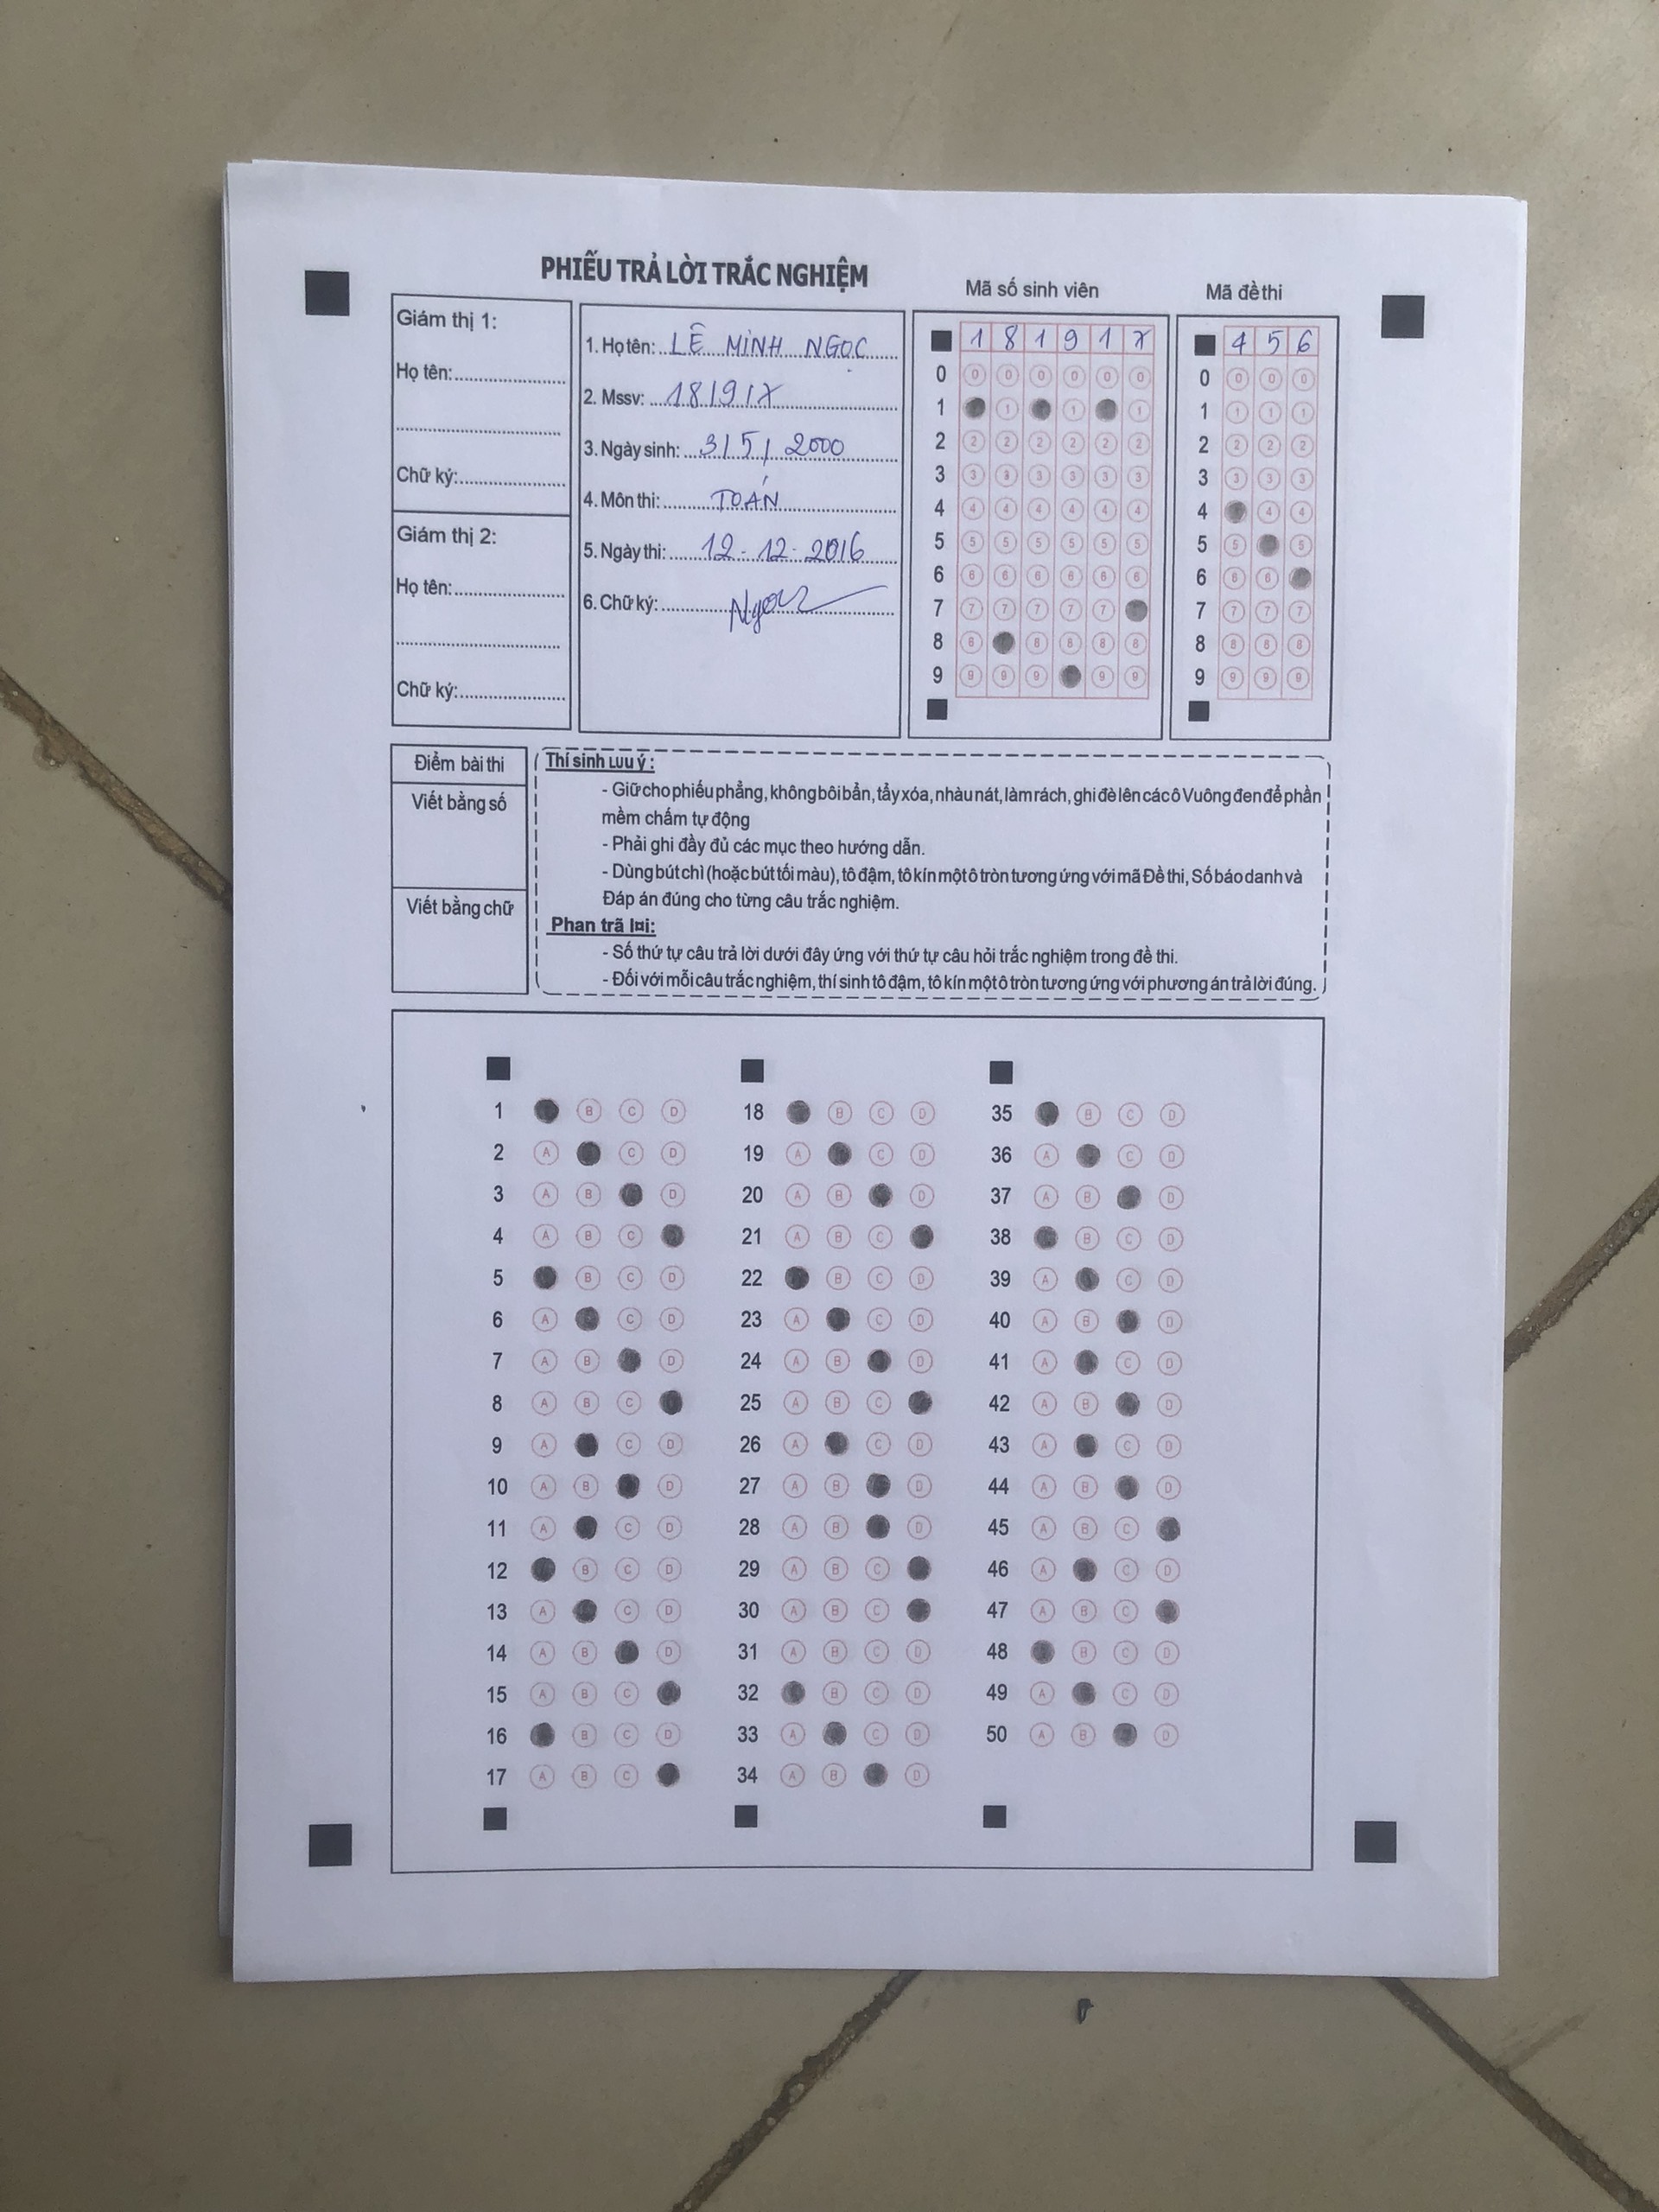 PHIẾU TRẢ LỜI TRẮC NGHIỆM
Giám thị 1:
Họ tên:
Chữ ký:
Giám thị 2:
Họ tên:
Chữ ký:
1. Họ tên: LÊ MINH NGỌC
2. Mssv: 181917
3. Ngày sinh: 3/5/2000
4. Môn thi: TOÁN
5. Ngày thi: 12-12-2016
6. Chữ ký: Ngọc
Mã số sinh viên
1 8 1 9 1 7
0 0 0 0 0 0 0
1 1 1 1
2 2 2 2 2 2 2
3 3 3 3 3 3 3
4 4 4 4 4 4 4
5 5 5 5 5 5 5
6 6 6 6 6 6 6
7 7 7 7 7 7
8 8 8 8 8 8
9 9 9 9 9 9
Mã đề thi
4 5 6
0 0 0 0
1 1 1 1
2 2 2 2
3 3 3 3
4 4 4
5 5 5
6 6 6
7 7 7 7
8 8 8 8
9 9 9 9
Điểm bài thi
Viết bằng số
Viết bằng chữ
Thí sinh Lưu ý :
- Giữ cho phiếu phẳng, không bôi bẩn, tẩy xóa, nhàu nát, làm rách, ghi đè lên các ô Vuông đen để phần
mềm chấm tự động
- Phải ghi đầy đủ các mục theo hướng dẫn.
- Dùng bút chì (hoặc bút tối màu), tô đậm, tô kín một ô tròn tương ứng với mã Đề thi, Số báo danh và
Đáp án đúng cho từng câu trắc nghiệm.
Phan trã l¤i:
- Số thứ tự câu trả lời dưới đây ứng với thứ tự câu hỏi trắc nghiệm trong đề thi.
- Đối với mỗi câu trắc nghiệm, thí sinh tô đậm, tô kín một ô tròn tương ứng với phương án trả lời đúng.
1 B C D
2 A C D
3 A B D
4 A B C
5 B C D
6 A C D
7 A B D
8 A B C
9 A C D
10 A B D
11 A C D
12 B C D
13 A C D
14 A B D
15 A B C
16 B C D
17 A B C
18 B C D
19 A C D
20 A B D
21 A B C
22 B C D
23 A C D
24 A B D
25 A B C
26 A C D
27 A B D
28 A B D
29 A B C
30 A B C
31 A B C D
32 B C D
33 A C D
34 A B D
35 B C D
36 A C D
37 A B D
38 B C D
39 A C D
40 A B D
41 A C D
42 A B D
43 A C D
44 A B D
45 A B C
46 A C D
47 A B C
48 B C D
49 A C D
50 A B D